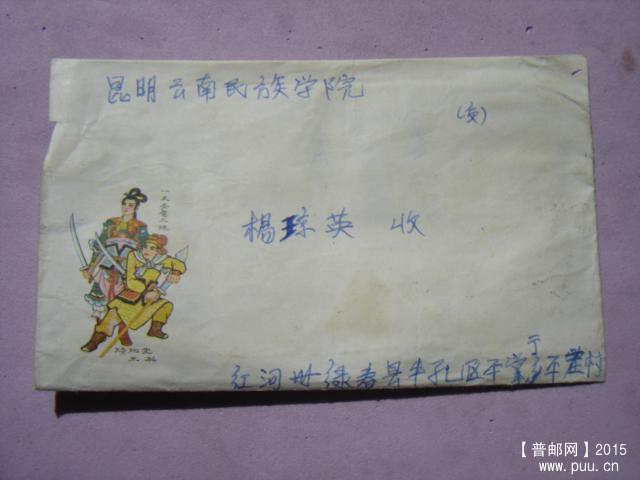 昆明云南民族学院
(交)
杨琼英 收
一丈青扈三娘
矮脚虎
王英
红河州绿春县半孔区平掌乡平莊村
【普邮网】2015
www.puu.cn